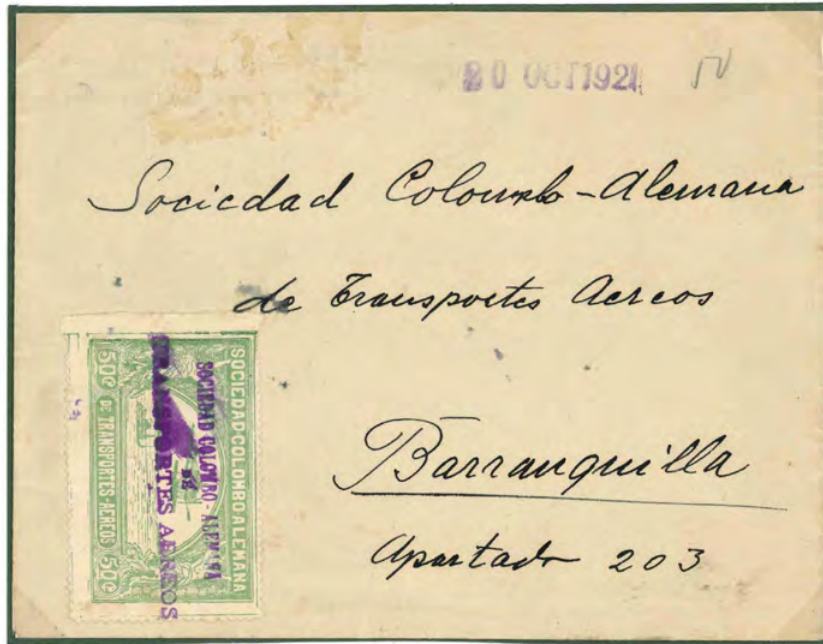 20 OCT 1921
Sociedad Colombo-Alemana
de Transportes Aereos
Barranquilla
Apartado 203
SOCIEDAD·COLOMBO·ALEMANA
50¢ DE TRANSPORTES-AEREOS 50¢
SOCIEDAD COLOMBO-ALEMANA
DE
TRANSPORTES AEREOS